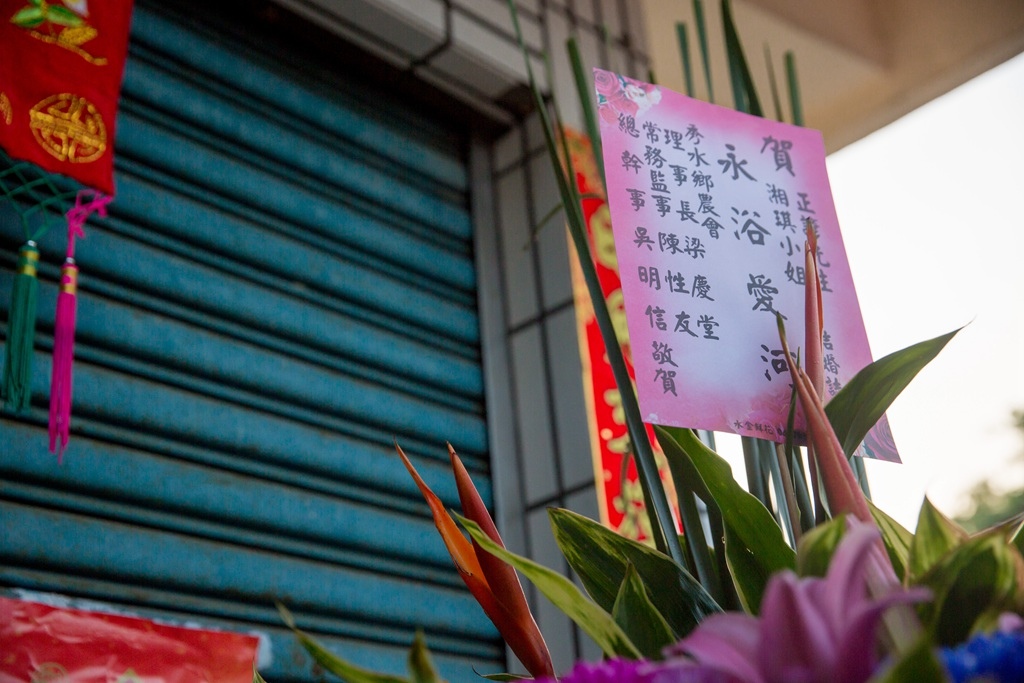 賀
正義先生
湘琪小姐
結婚誌
永浴愛河
秀水鄉農會
理事長 梁慶堂
常務監事 陳性友
總幹事 吳明信 敬賀